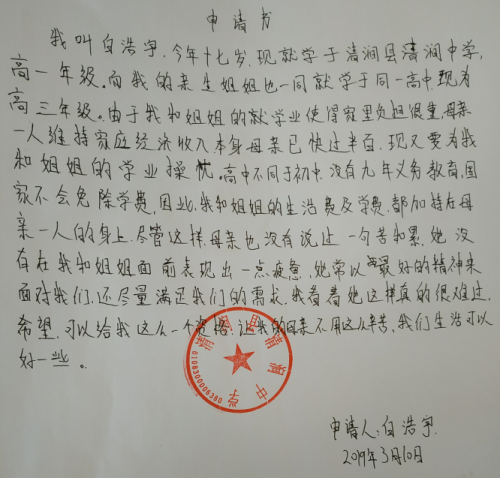 申请书
我叫白浩宇,今年十七岁,现就学于清涧县清涧中学,
高一年级。而我的亲生姐姐也一同就学于同一高中,现为
高三年级。由于我和姐姐的就学业使得家里负担很重,母亲
一人维持家庭经济收入本身母亲已快过半百,现又要为我
和姐姐的学业操忧。高中不同于初中,没有九年义务教育,国
家不会免除学费,因此,我和姐姐的生活费及学费,都加持在母
亲一人的身上,尽管这样,母亲也没有说过一句苦和累,她没
有在我和姐姐面前表现出一点疲惫,她常以最好的精神来
面对我们,还尽量满足我们的需求,我看着她这样真的很难过,
希望,可以给我这么一个资格,让我的母亲不用这么辛苦,我们生活可以
好一些。
清涧县清涧中学
6108300006380
申请人:白浩宇
2019年3月10日